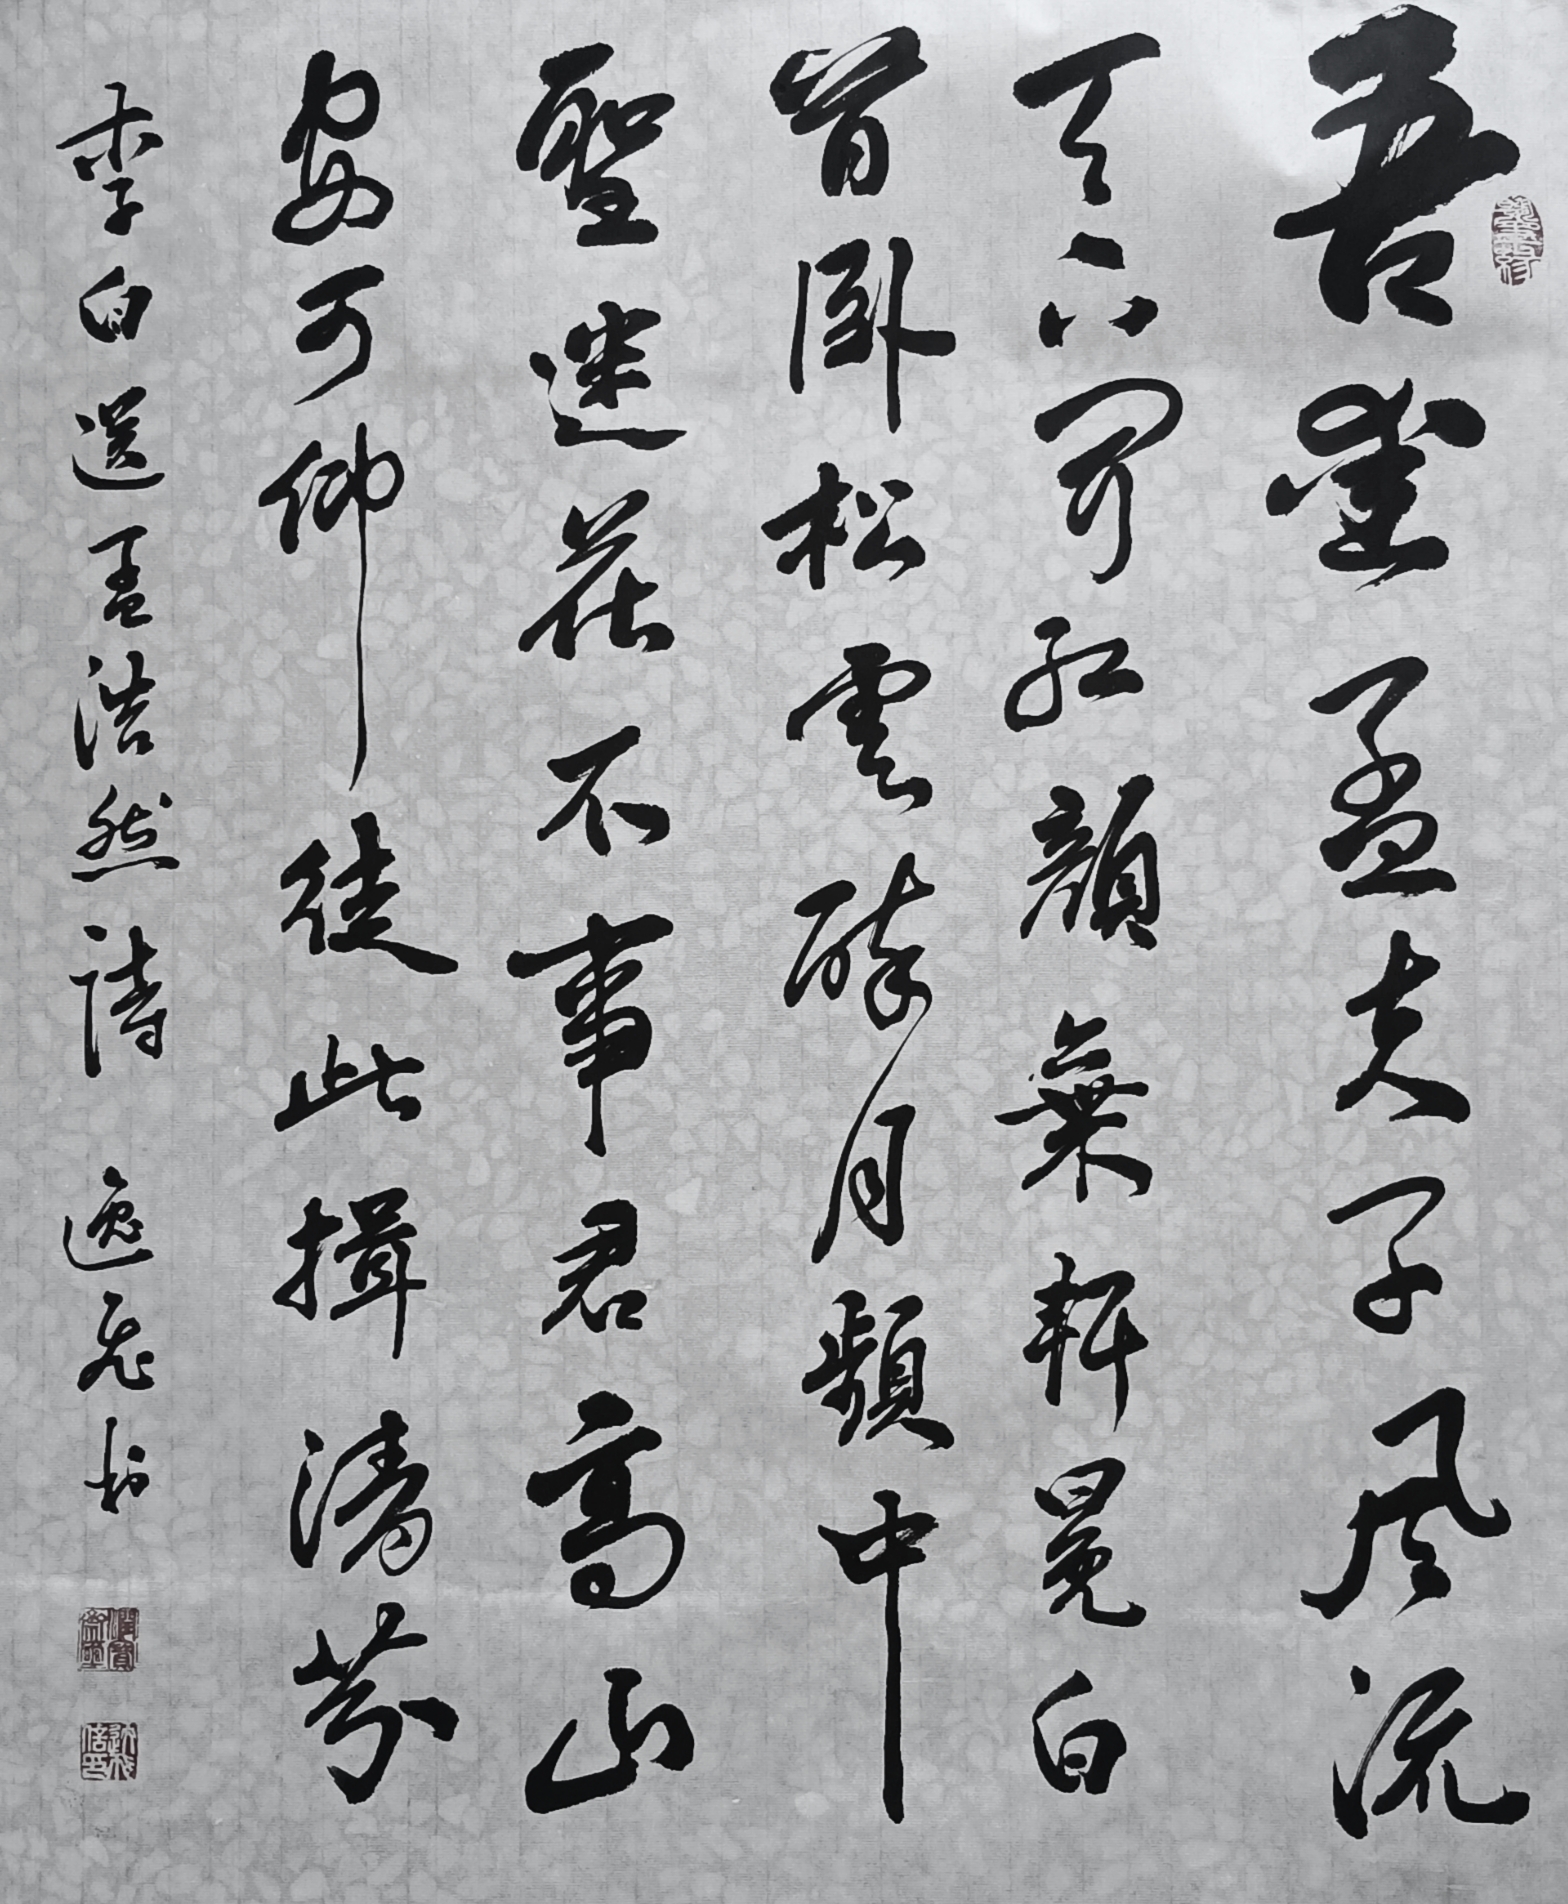 吾愛孟夫子風流
天下聞紅顏棄軒冕白
首臥松雲醉月頻中
聖迷花不事君高山
安可仰徒此揖清芬
李白送孟浩然詩 逸 书